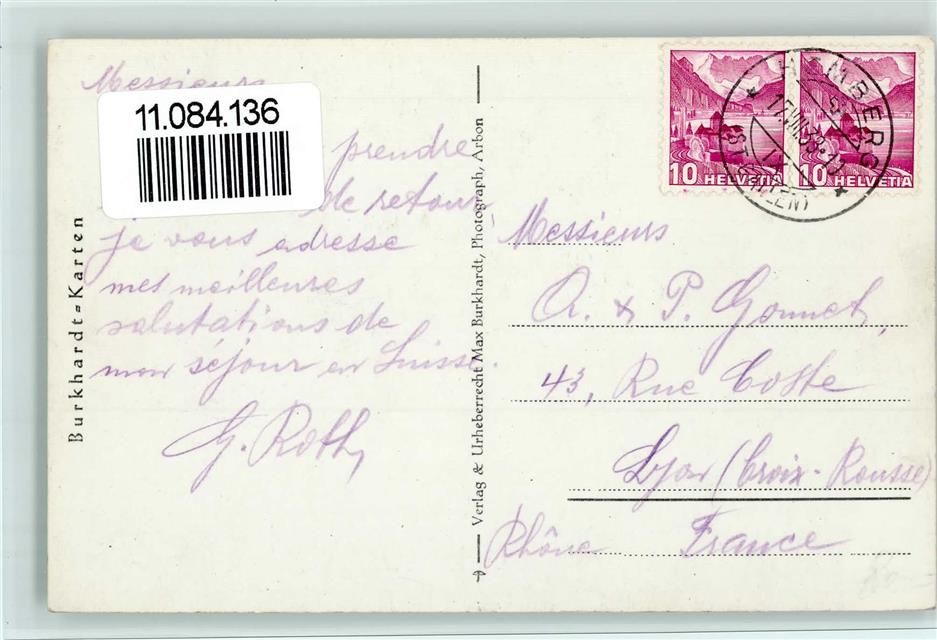 Messieurs
11.084.136
prendre
de retour
je vous adresse
mes meilleures
salutations de
mon séjour en Suisse.
G. Roth
Burkhardt=Karten
Verlag & Urheberrecht Max Burkhardt, Photograph, Arbon
10 HELVETIA
10 HELVETIA
HEMBERG
(ST. GALLEN)
Messieurs
A. & P. Gonnet,
43, Rue Coste
Lyon (Croix-Rousse)
Rhône France